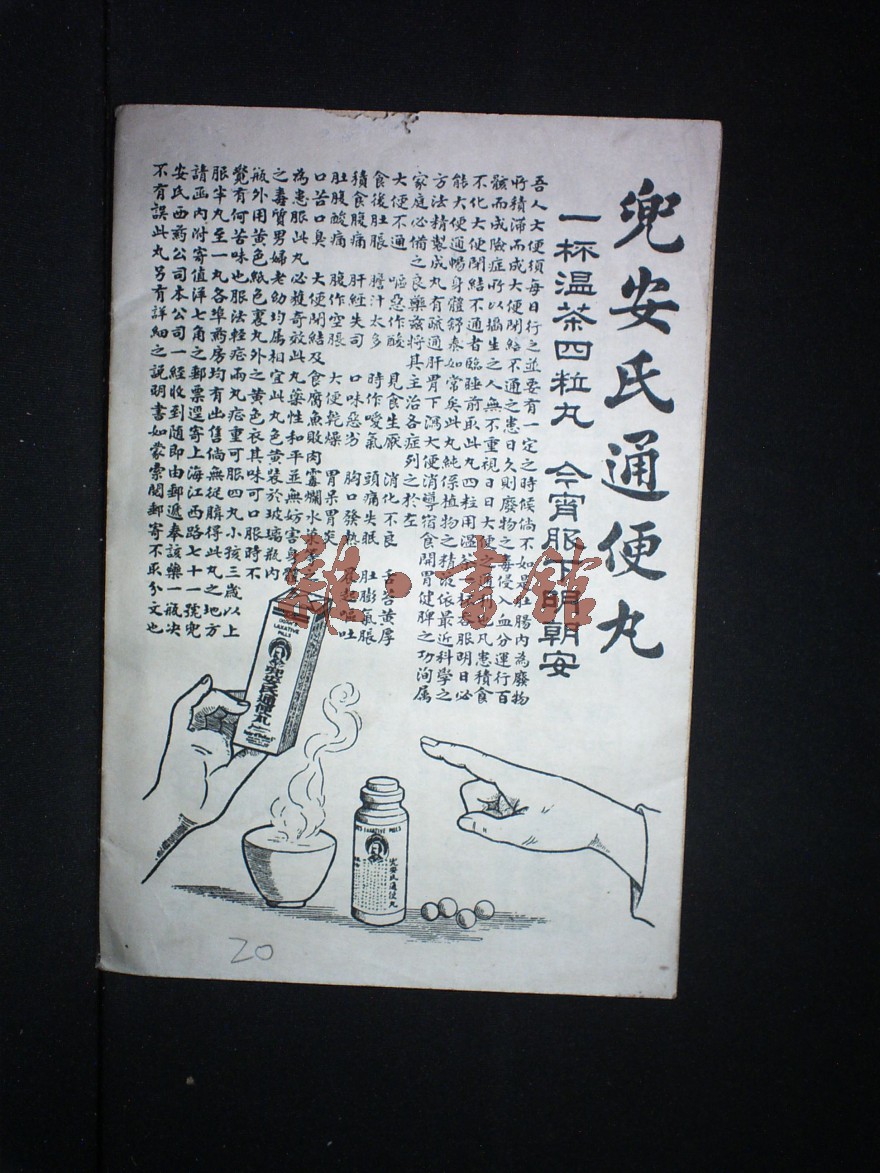 兜安氏通便丸
一杯温茶四粒丸 今宵服下明朝安
吾人大便須每日行之並要有一定之時候倘不如是肚腸內為廢物
所積滯而成大便閉結不通之患日久則廢物之毒侵入血分運行百
骸而成險症所以攝生之人無不重視日日大便之通凡患積食
不化大便閉結不通者臨睡前取此丸四粒用溫茶一杯吞服明日必
能大便通暢身體舒泰如常矣此丸純係植物之精液依最近科學之
方法精製成丸有疏通肝胃下瀉大便消導宿食開胃健脾之功洵屬
家庭必備之良藥茲將其主治各症列之於左
大便不通 嘔惡作酸 見食生厭 消化不良 舌苔黃厚
食後肚脹 膽汁太多 時作噯氣 頭痛失眠 肚膨氣脹
積食腹痛 肝經失司 口味惡劣 胸口發熱 晨起嘔吐
肚腹酸痛 腹作空脹 大便乾燥 胃呆胃炎
口苦口臭 大便閉結及食腐魚敗肉霉爛水菓等之
為患服此丸必獲奇效此丸藥性和平並無妨害身體
之毒質男婦老幼均屬相宜此丸色黃裝於玻璃瓶內
瓶外用黃色紙包裹丸外之黃色衣其味可口服時不
覺有何苦味也服法輕症兩丸症重可服四丸小孩三歲以上
服半丸至一丸各埠藥房均有出售倘無從購得此丸之地方
請函內附寄值洋七角之郵票逕寄上海江西路七十一號兜
安氏西藥公司本公司一經收到隨即由郵遞奉該藥一瓶決
不有誤此丸另有詳細之說明書如蒙索閱郵寄不取分文也
雜·書館
LAXATIVE
PILLS
兜安氏通便丸
LAXATIVE PILLS
兜安氏通便丸
20